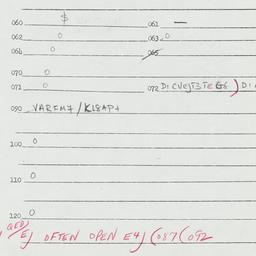 060 $ 061 —
062 0 063. 0
064 0 065
070 0
071 0 072 DICVEJT3TEG6) DI
090 VARFM7/KL8AP+
100 0
110 0
120 0
QED)
EJ OFTEN OPEN E4J (087(092